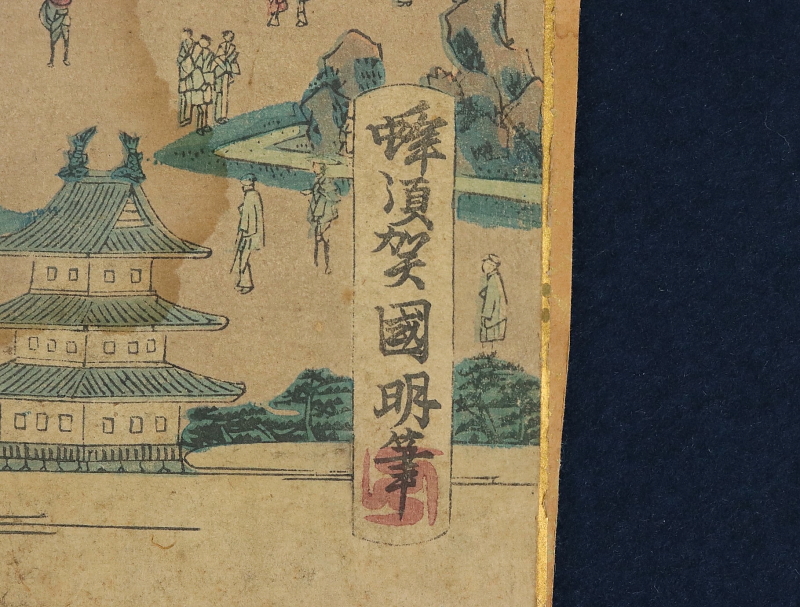 蜂須賀國明筆